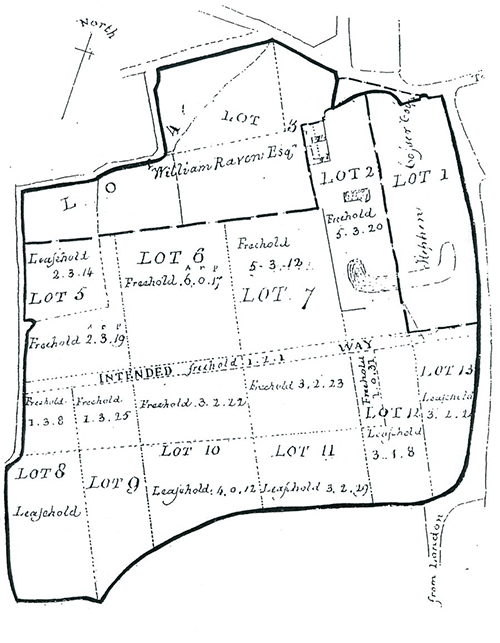 North
LOT 3
LOT 4
William Raven Esqr
LOT 2
Freehold
5.3.20
LOT 1
Stephen
Leasehold
2.3.14
LOT 5
Freehold 2.3.19
LOT 6
A R P
Freehold 6.0.17
Freehold
5.3.12
LOT 7
INTENDED freehold 1.2.1 WAY
Freehold
1.3.8
Freehold
1.3.25
Freehold 3.2.22
Freehold 3.2.23
Freehold
LOT 12
Leasehold
3.1.8
LOT 13
Leasehold
LOT 8
Leasehold
LOT 9
LOT 10
Leasehold 4.0.12
LOT 11
Leasehold 3.2.29
from London